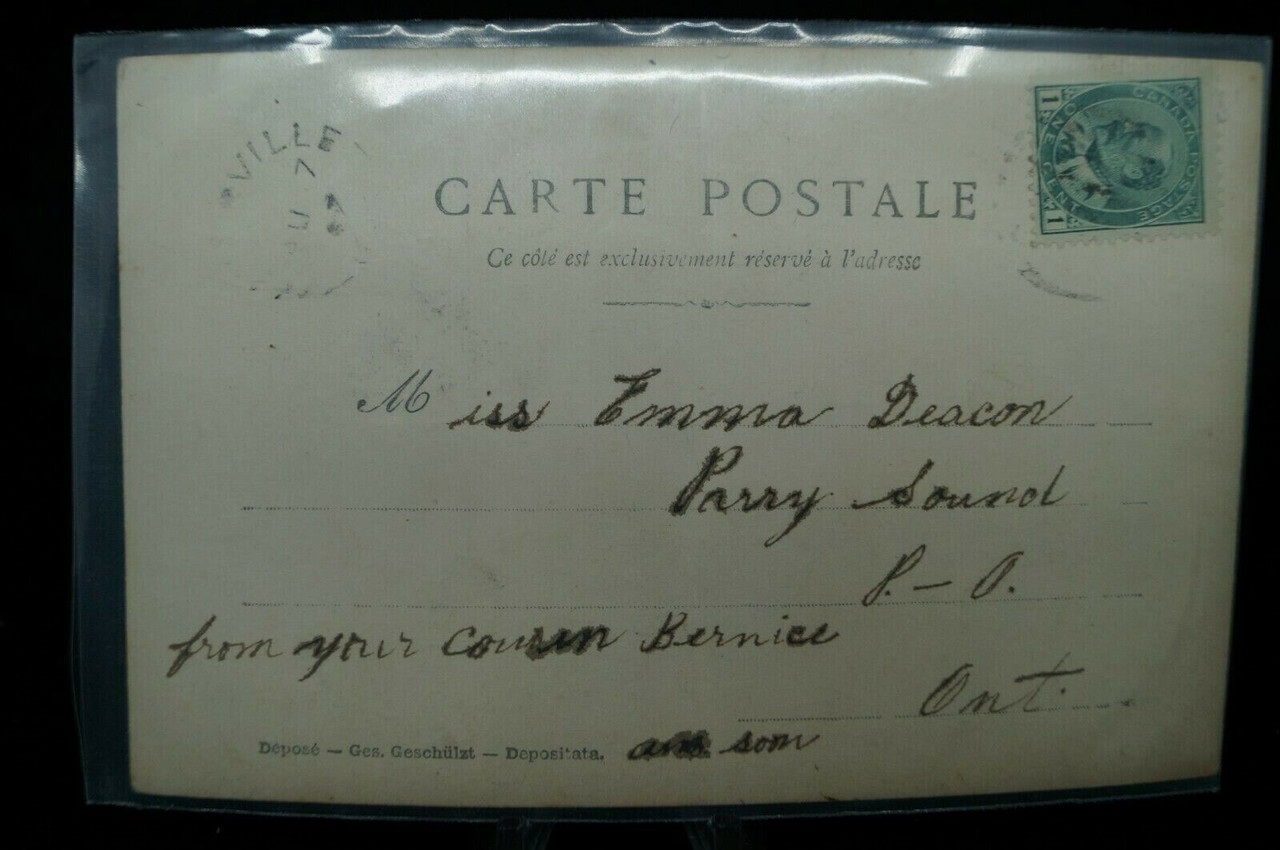 VILLE
7
CARTE POSTALE
CANADA POSTAGE
ONE CENT
1 1
Ce côté est exclusivement réservé à l'adresse
Miss Emma Deacon
Parry Sound
P. - O.
from your cousin Bernice
Ont.
Déposé — Ges. Geschülzt — Depositata.
som